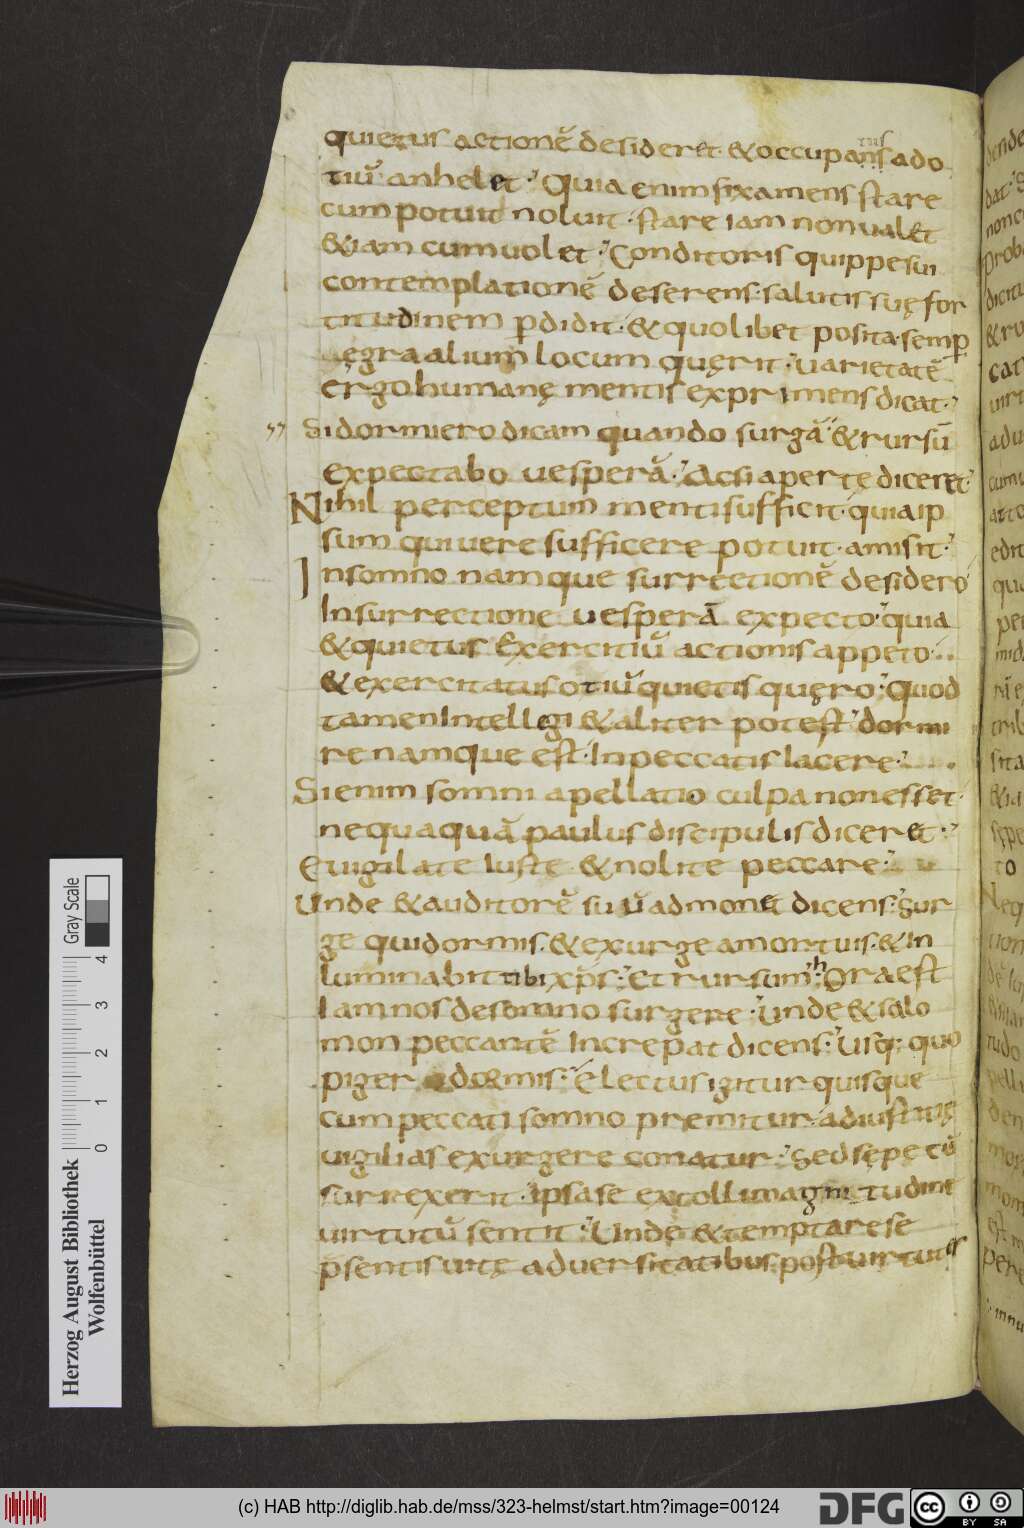 quietus actionē desideret · & occupans ad o
tus
tiū anhelet · Quia enim fixa mens stare
cum potuit noluit · stare iam non ualet
& iam cum uolet · Conditoris quippe sui
contemplationē deserens · salutis suę for
titudinem p̄didit · & quolibet posita · semp̄
ęgra alium locum quęrit · uarietatē
ergo humanę mentis exprimens dicat ·
Si dormiero dicam quando surgā · & rursū
expectabo uesperā · Ac si aperte diceret ·
Nihil perceptum menti sufficit · quia ip
sum qui uere sufficere potuit · amisit ·
In somno namque surrectionē desidero
In surrectione uesperā expecto · quia
& quietus Exercitiū actionis appeto ·
& exercitatus otiū quietis quęro · Quod
tamen Intellegi & aliter potest · dormi
re namque est · In peccatis Iacere ·
Si enim somni apellatio culpa non esset ·
nequaquā paulus discipulis diceret ·
Euigilate Iuste · & nolite peccare ·
Unde & auditorē suū admonet dicens · Sur
ge qui dormis · & exurge a mortuis · & In
luminabit tibi xp̄s · Et rursum · hora est
Iam nos de somno surgere · Unde & salo
mon peccantē Increpat dicens · Usq; quo
piger dormis · Electus igitur quisque
cum peccati somno premitur · ad iustitię
uigilias exurgere conatur · Sed sępe cū
surrexerit · Ipsa se extolli magnitudine
uirtutū sentit · Unde & temptare se
p̄sentis uitę aduersitatibus · post uirtutes
Herzog August Bibliothek
Wolfenbüttel
Gray Scale
0 1 2 3 4
(c) HAB http://diglib.hab.de/mss/323-helmst/start.htm?image=00124
DFG
cc BY SA